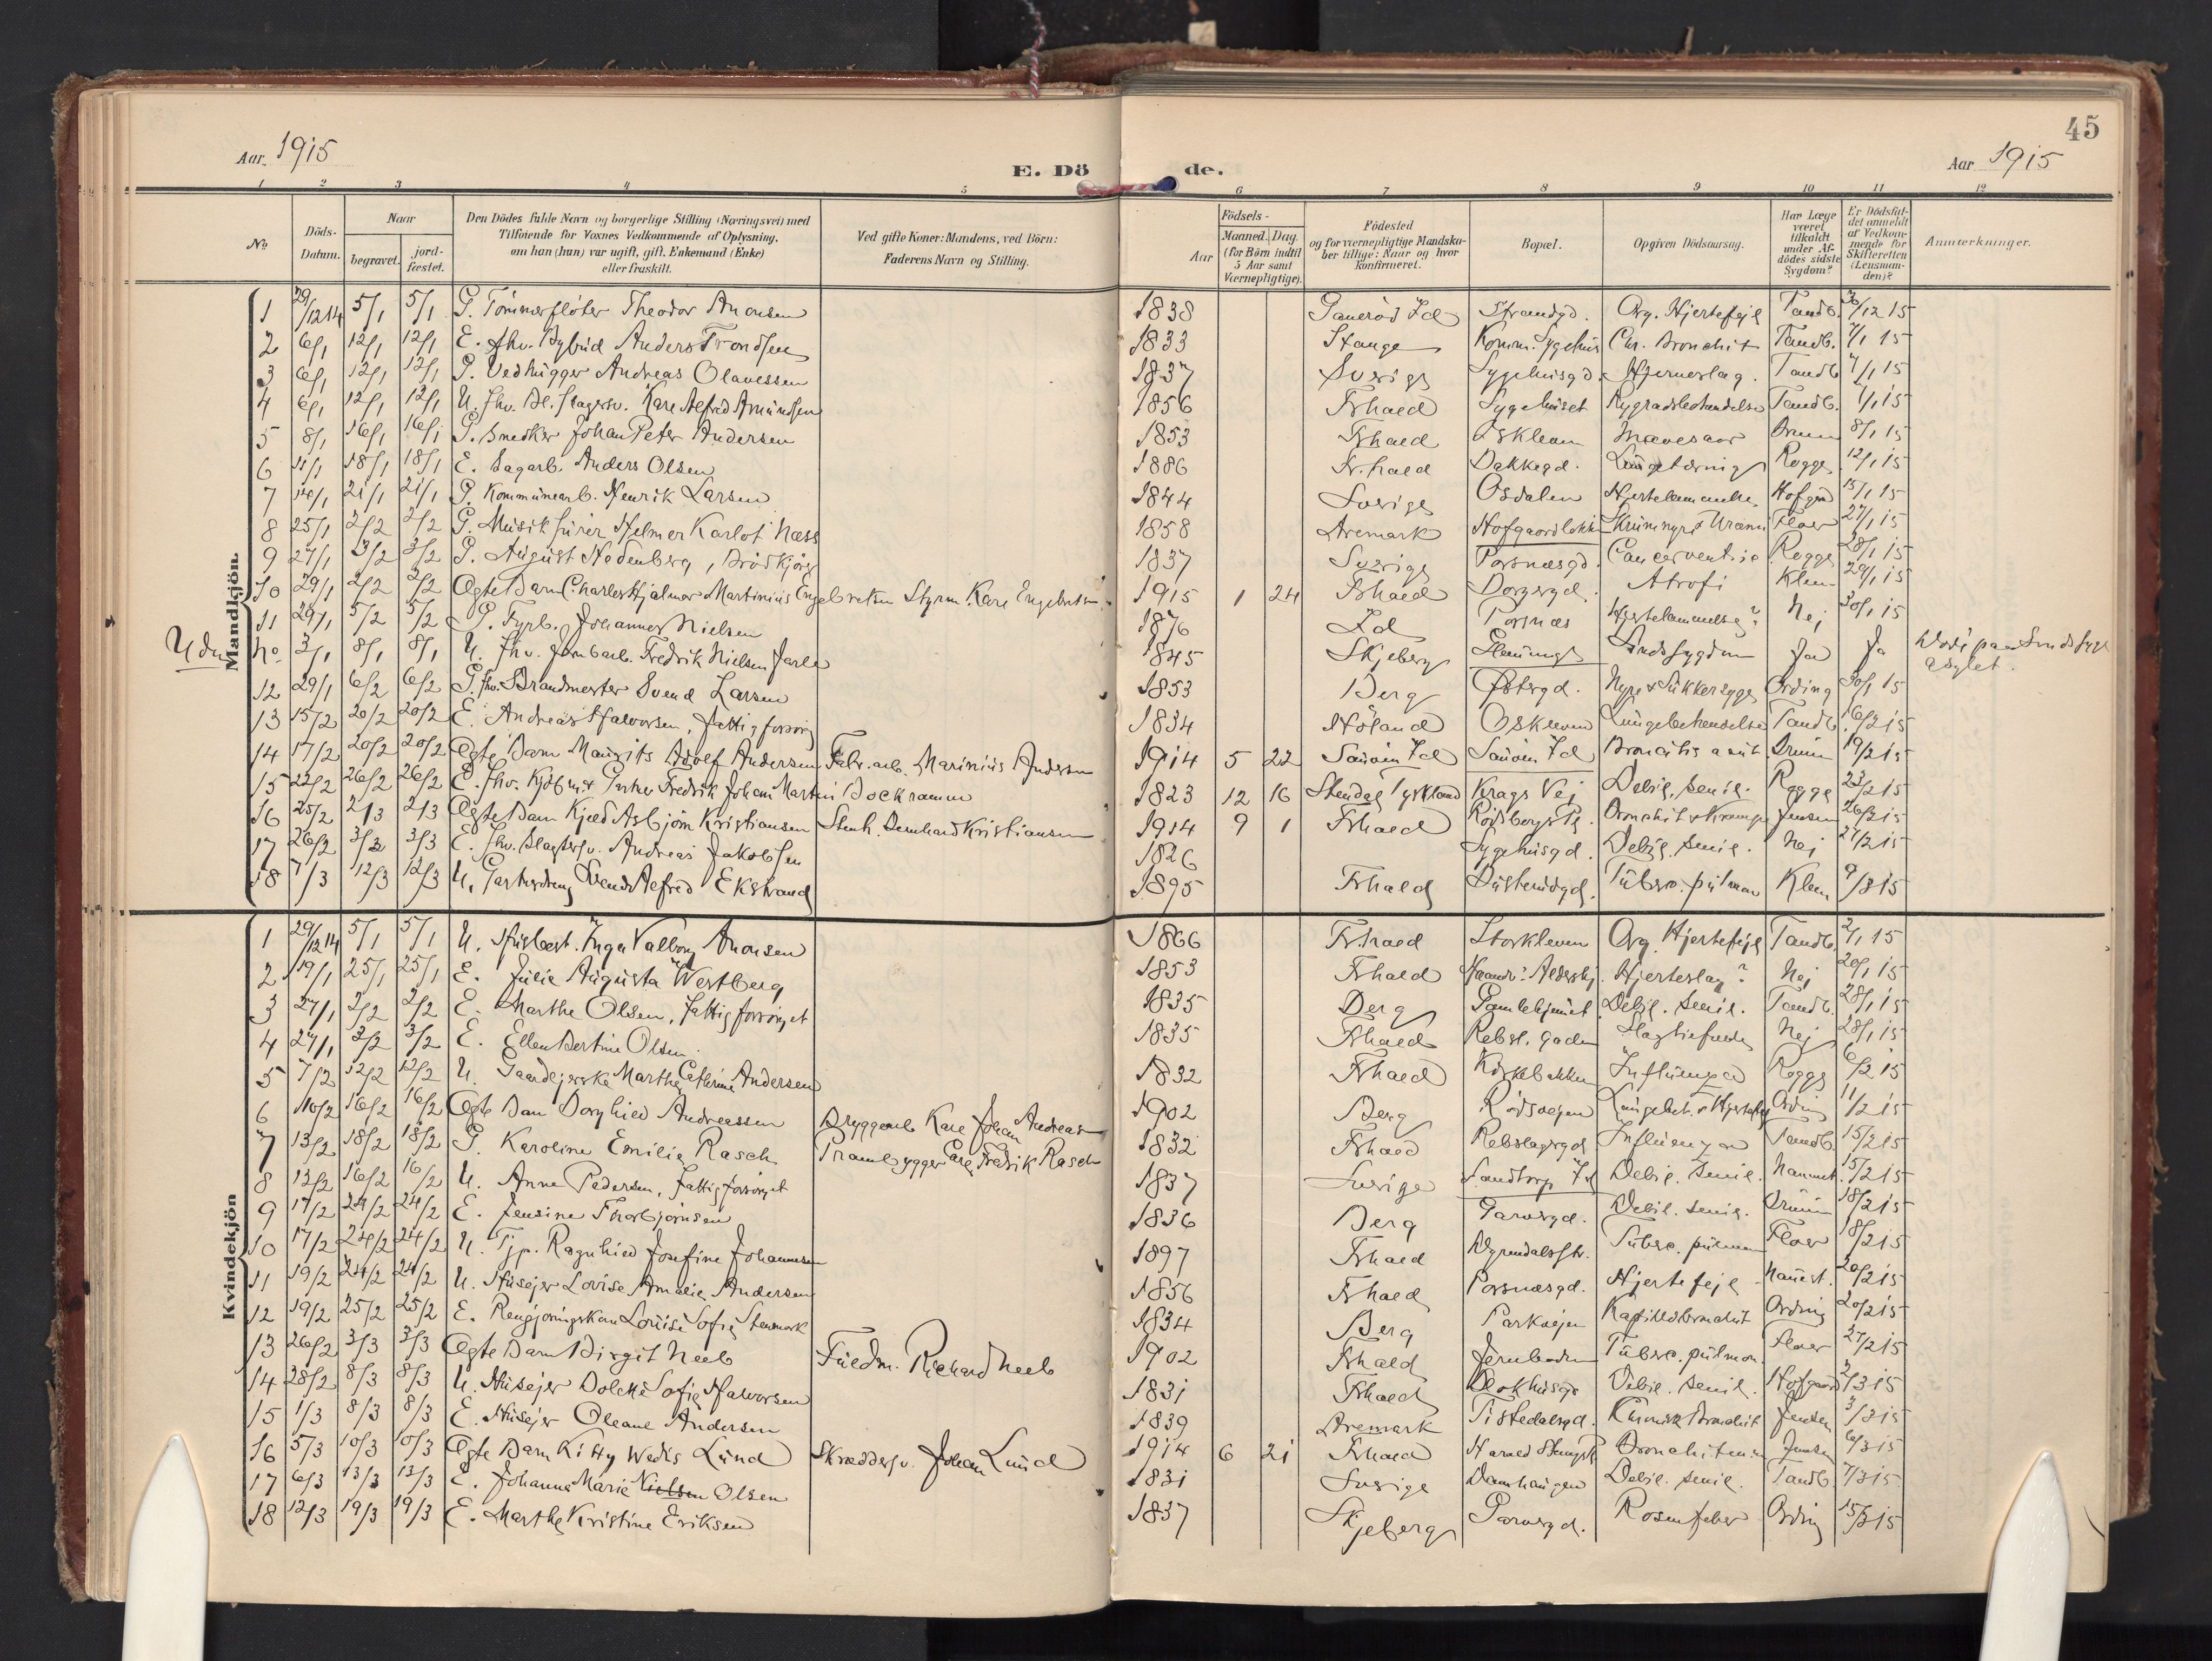 45
Aar 1915
E. Dö de.
Aar 1915
1 2 3 4 5 6 7 8 9 10 11 12
No
Döds-Datum.
Naar
begravet.
jord-fæstet.
Den Dödes fulde Navn og borgerlige Stilling (Næringsvei) med
Tilföiende for Voxnes Vedkommende af Oplysning,
om han (hun) var ugift, gift, Enkemand (Enke)
eller fraskilt.
Ved gifte Koner: Mandens, ved Börn:
Faderens Navn og Stilling.
Födsels-
Aar
Maaned. Dag.
(for Börn indtil
5 Aar samt
Værnepligtige).
Födested
og for værnepligtige Mandska-
ber tillige: Naar og hvor
Konfirmeret.
Bopæl.
Opgiven Dödsaarsag.
Har Læge
været
tilkaldt
under Af-
dödes sidste
Sygdom?
Er Dödsfal-
det anmeldt
af Vedkom-
mende for
Skifteretten
(Lensman-
den)?
Anmærkninger.
Mandkjön.
1 29/12 14 5/1 5/1 G. Tömmerfløter Theodor Anonsen 1838 Id Strandgd. Org. Hjertefejl Tandb. 30/12 15
2 6/1 12/1 12/1 E. fhv. Anders Trondsen 1833 Stange Komm. Sygehus Chr. Bronchit Tandb. 7/1 15
3 6/1 12/1 12/1 G. Vedhugger Andreas Olavessen 1837 Sverige Sygehusgd. Hjerneslag. Tandb 7/1 15
4 6/1 12/1 12/1 U. fhv. Karl Alfred Amundsen 1856 Frhald Sygehuset Tandb. 7/1 15
5 8/1 16/1 16/1 G. Snedker Johan Peter Andersen 1853 Frhald Oskleven Mavesaar 8/1 15
6 11/1 18/1 18/1 E. Sagarb. Anders Olsen 1886 Fr.hald Bakkegd. Rogge 12/1 15
7 14/1 21/1 21/1 G. Kommunearb. Henrik Larsen 1844 Sverige Osdalen Hofgrd 15/1 15
8 25/1 2/2 2/2 G. Musikfurer Helmer Karlot Næss 1858 Aremark Skrumnyre Uræmi Floer 27/1 15
9 27/1 3/2 3/2 G. August Hedenberg, Brödkjörer 1837 Sverige Porsnæsgd. Cancer ventric Rogge 28/1 15
10 29/1 2/2 2/2 Ægte Barn Charles Hjalmar Martinius Engebretsen Styrm. Karl Engebretsen 1915 1 24 Frhald Borgergd. Atrofi Klem 29/1 15
11 29/1 5/2 5/2 G. Fyrb. Johannes Nielsen 1876 Id Porsnæs Hjertelammelse? Nej 30/1 15
Uden No. 3/1 8/1 8/1 U. fhv. Jernbarb. Fredrik Nielsen 1845 Skjeberg Sindssygdom Ja Ja Död paa Sindssyge
asylet.
12 29/1 6/2 6/2 G. fhv. Brandmester Svend Larsen 1853 Berg Östergd. Nyre & Sukkersyge Ording 30/1 15
13 15/2 20/2 20/2 E. Andreas Halvorsen, fattigforsörg 1834 Höland Oskleven Tandb. 16/2 15
14 17/2 20/2 20/2 Ægte Barn Maurits Adolf Andersen Fabr.arb. Marinius Andersen 1914 5 22 Sauöen Id Sauöen Id Broncitis acut. 19/2 15
15 22/2 26/2 26/2 E. fhv. Kjöbm. & Garver Fredrik Johan Martin Bockramm 1823 12 16 Stendal Tyskland Krags Vej Debil. senil. Rogge 23/2 15
16 25/2 2/3 2/3 Ægte Barn Kjeld Asbjörn Kristiansen Stenh. Bernhard Kristiansen 1914 9 1 Frhald Rödsbergst. Bronchit & Krampe Jensen 26/2 15
17 26/2 3/3 3/3 E. fhv. Slagtersv. Andreas Jakobsen 1826 Sygehusgd. Debil. senil. Nej 27/2 15
18 7/3 12/3 12/3 U. Gartnerdreng Svend Alfred Ekstrand 1895 Frhald Tuberc. pulmon Klem 9/3 15
Kvindekjön
1 29/12 14 5/1 5/1 U. Husbest. Inga Valborg Anonsen 1866 Frhald Storkleven Org. Hjertefejl Tandb. 2/1 15
2 19/1 25/1 25/1 E. Julie Augusta Westberg 1853 Frhald Haandv. Aldershj. Hjerteslag? Nej 20/1 15
3 27/1 2/2 2/2 E. Marthe Olsen, fattigforsörget 1835 Berg Gamlehjemet Debil. senil. Tandb. 28/1 15
4 27/1 3/2 3/2 E. Ellen Bertine Olsen 1835 Frhald Rebsl. gaden Slagtilfælde Nej 28/1 15
5 7/2 12/2 12/2 U. Gaardejerske Marthe Cathrine Andersen 1832 Frhald Kirkebakken Influenza Rogge 6/2 15
6 10/2 16/2 16/2 Ægte Barn Borghild Andreassen Bryggearb Karl Johan Andreasen 1902 Berg Rödsvejen Lungebet. & Hjertefejl Ording 11/2 15
7 13/2 18/2 18/2 G. Karoline Emilie Rasch Prambygger Carl Fredrik Rasch 1832 Frhald Rebslagergd Influenza Tandb. 15/2 15
8 13/2 16/2 16/2 U. Anne Pedersen, fattigforsörget 1837 Sverige Sandtorp Id Debil. senil. 15/2 15
9 17/2 24/2 24/2 E. Jensine Thorbjørnsen 1836 Berg Garvergd. Debil. senil. 18/2 15
10 17/2 24/2 24/2 U. Tjp. Ragnhild Josefine Johannesen 1897 Frhald Tuberc. pulmon Floer 18/2 15
11 19/2 24/2 24/2 U. Husejer Lovise Amalie Andersen 1856 Frhald Porsnæsgd. Hjertefejl 20/2 15
12 19/2 25/2 25/2 E. Rengjøringskon Louise Sofie Stenmark 1834 Berg Parkvejen Kapillærbronchit Ording 20/2 15
13 26/2 3/3 3/3 Ægte Barn Birgit Neeb Fuldm. Richard Neeb 1902 Frhald Tuberc. pulmon. Floer 27/2 15
14 28/2 8/3 8/3 U. Husejer Sofie Halvorsen 1831 Frhald Blokhusgt Debil. senil. Hofgaard 2/3 15
15 1/3 8/3 8/3 E. Husejer Oleane Andersen 1839 Aremark Tistedalsgd. Kronisk Bronchit Jensen 3/3 15
16 5/3 10/3 10/3 Ægte Barn Kitty Wedis Lund Skræddersv. Johan Lund 1914 6 21 Frhald Jensen 6/3 15
17 6/3 13/3 13/3 E. Johanne Marie Nielsen Olsen 1831 Sverige Damhaugen Debil. senil. Tandb. 7/3 15
18 12/3 19/3 19/3 E. Marthe Kristine Eriksen 1837 Skjeberg Garvergd. Rosenfeber Ording 15/3 15